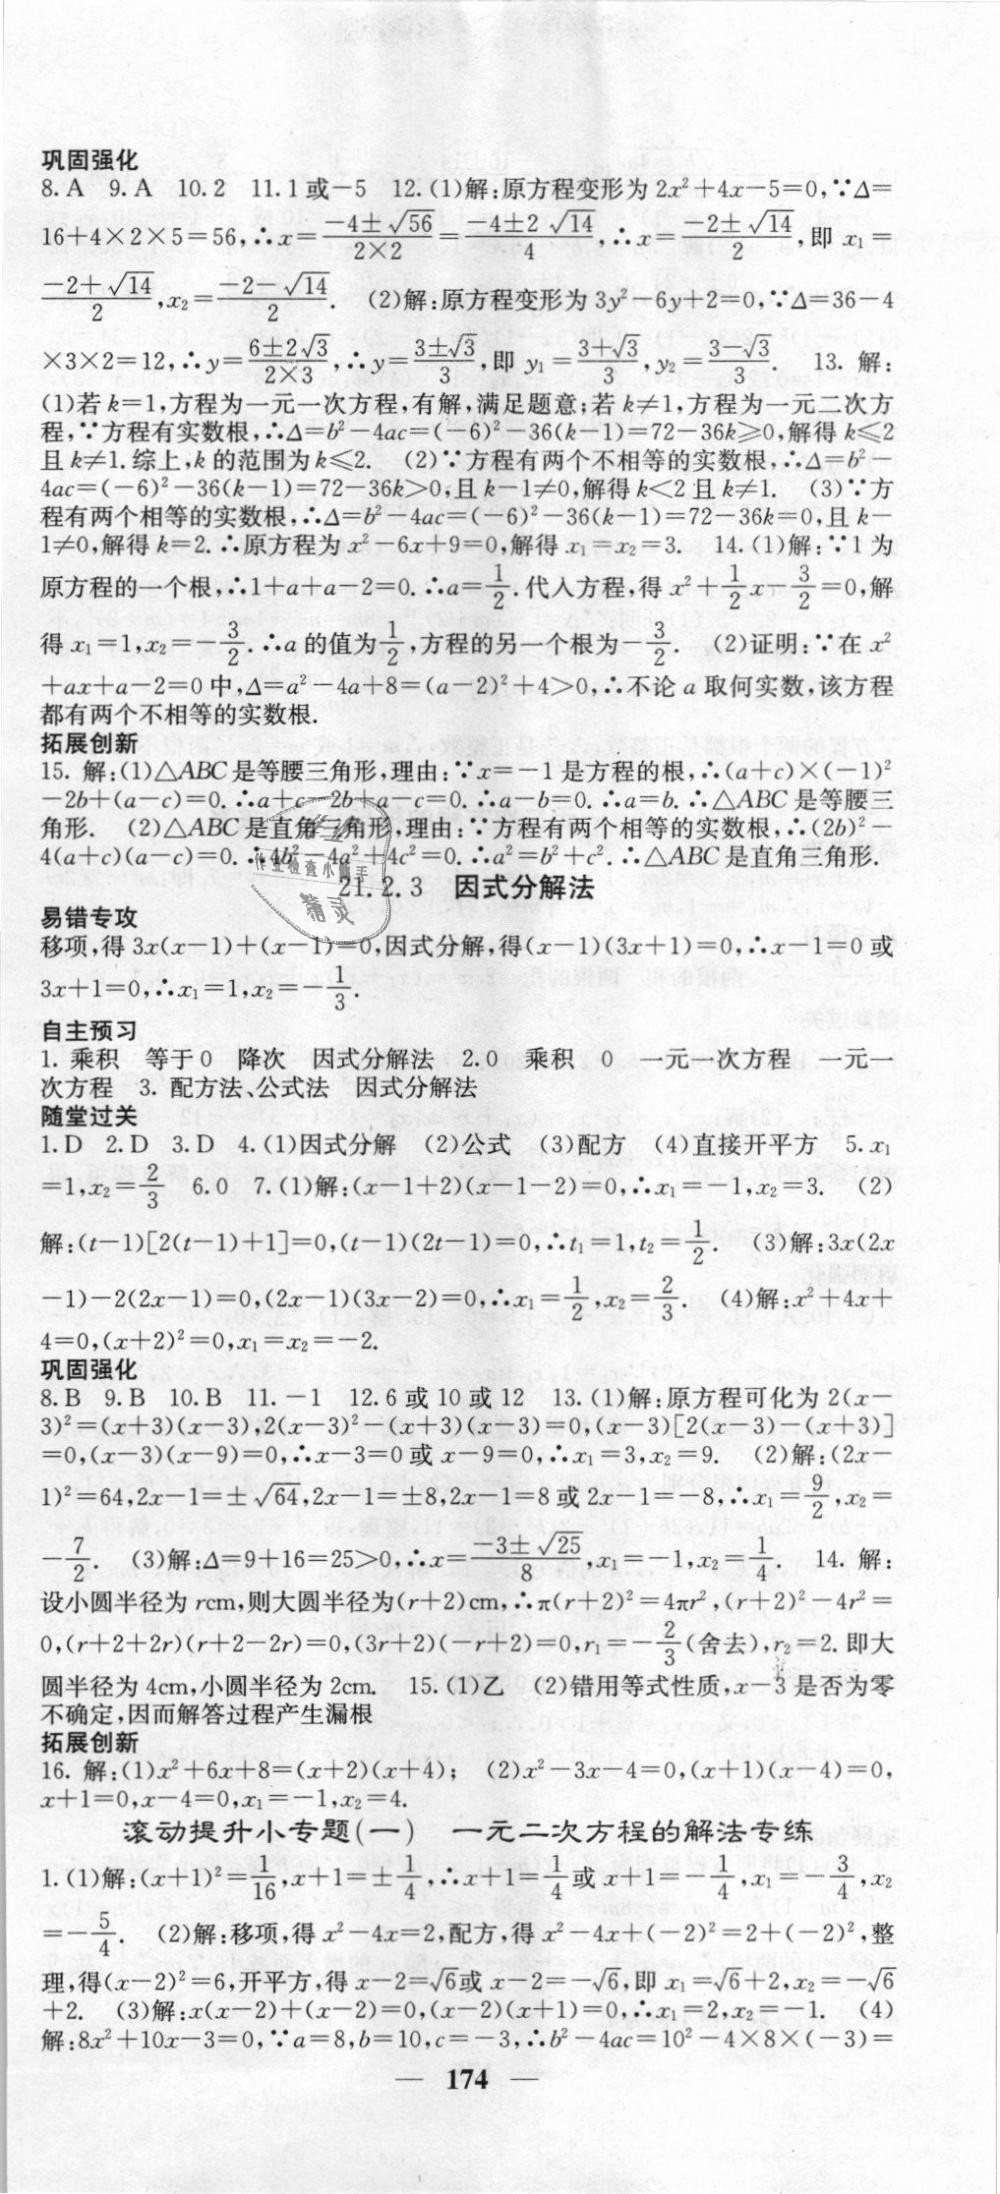 巩固强化
8.A 9.A 10.2 11.1或-5 12.(1)解:原方程变形为2x²+4x-5=0,∵Δ=
16+4×2×5=56,∴x=(-4±√56)/(2×2)=(-4±2√14)/4,∴x=(-2±√14)/2,即x₁=
(-2+√14)/2,x₂=(-2-√14)/2. (2)解:原方程变形为3y²-6y+2=0,∵Δ=36-4
×3×2=12,∴y=(6±2√3)/(2×3),∴y=(3±√3)/3,即y₁=(3+√3)/3,y₂=(3-√3)/3. 13. 解:
(1)若k=1,方程为一元一次方程,有解,满足题意;若k≠1,方程为一元二次方
程,∵方程有实数根,∴Δ=b²-4ac=(-6)²-36(k-1)=72-36k≥0,解得k≤2
且k≠1.综上,k的范围为k≤2. (2)∵方程有两个不相等的实数根,∴Δ=b²-
4ac=(-6)²-36(k-1)=72-36k>0,且k-1≠0,解得k<2且k≠1. (3)∵方
程有两个相等的实数根,∴Δ=b²-4ac=(-6)²-36(k-1)=72-36k=0,且k-
1≠0,解得k=2.∴原方程为x²-6x+9=0,解得x₁=x₂=3. 14.(1)解:∵1为
原方程的一个根,∴1+a+a-2=0.∴a=1/2.代入方程,得x²+1/2x-3/2=0,解
得x₁=1,x₂=-3/2.∴a的值为1/2,方程的另一个根为-3/2. (2)证明:∵在x²
+ax+a-2=0中,Δ=a²-4a+8=(a-2)²+4>0,∴不论a取何实数,该方程
都有两个不相等的实数根.
拓展创新
15. 解:(1)△ABC是等腰三角形,理由:∵x=-1是方程的根,∴(a+c)×(-1)²
-2b+(a-c)=0.∴a+c-2b+a-c=0.∴a-b=0.∴a=b.∴△ABC是等腰三
角形. (2)△ABC是直角三角形,理由:∵方程有两个相等的实数根,∴(2b)²-
4(a+c)(a-c)=0.∴4b²-4a²+4c²=0.∴a²=b²+c².∴△ABC是直角三角形.
作业检查小助手
精灵
21.2.3 因式分解法
易错专攻
移项,得3x(x-1)+(x-1)=0,因式分解,得(x-1)(3x+1)=0,∴x-1=0或
3x+1=0,∴x₁=1,x₂=-1/3.
自主预习
1. 乘积 等于0 降次 因式分解法 2.0 乘积 0 一元一次方程 一元一
次方程 3. 配方法、公式法 因式分解法
随堂过关
1.D 2.D 3.D 4.(1)因式分解 (2)公式 (3)配方 (4)直接开平方 5.x₁
=1,x₂=2/3 6.0 7.(1)解:(x-1+2)(x-1-2)=0,∴x₁=-1,x₂=3. (2)
解:(t-1)[2(t-1)+1]=0,(t-1)(2t-1)=0,∴t₁=1,t₂=1/2. (3)解:3x(2x
-1)-2(2x-1)=0,(2x-1)(3x-2)=0,∴x₁=1/2,x₂=2/3. (4)解:x²+4x+
4=0,(x+2)²=0,x₁=x₂=-2.
巩固强化
8.B 9.B 10.B 11.-1 12.6或10或12 13.(1)解:原方程可化为2(x-
3)²=(x+3)(x-3),2(x-3)²-(x+3)(x-3)=0,(x-3)[2(x-3)-(x+3)]
=0,(x-3)(x-9)=0,∴x-3=0或x-9=0,∴x₁=3,x₂=9. (2)解:(2x-
1)²=64,2x-1=±√64,2x-1=±8,2x-1=8或2x-1=-8,∴x₁=9/2,x₂=
-7/2. (3)解:Δ=9+16=25>0,∴x=(-3±√25)/8,x₁=-1,x₂=1/4. 14. 解:
设小圆半径为rcm,则大圆半径为(r+2)cm,∴π(r+2)²=4πr²,(r+2)²-4r²=
0,(r+2+2r)(r+2-2r)=0,(3r+2)(-r+2)=0,r₁=-2/3(舍去),r₂=2.即大
圆半径为4cm,小圆半径为2cm. 15.(1)乙 (2)错用等式性质,x-3是否为零
不确定,因而解答过程产生漏根
拓展创新
16. 解:(1)x²+6x+8=(x+2)(x+4); (2)x²-3x-4=0,(x+1)(x-4)=0,
x+1=0,x-4=0,x₁=-1,x₂=4.
滚动提升小专题(一) 一元二次方程的解法专练
1.(1)解:(x+1)²=1/16,x+1=±1/4,∴x+1=1/4或x+1=-1/4,x₁=-3/4,x₂
=-5/4. (2)解:移项,得x²-4x=2,配方,得x²-4x+(-2)²=2+(-2)²,整
理,得(x-2)²=6,开平方,得x-2=√6或x-2=-√6,即x₁=√6+2,x₂=-√6
+2. (3)解:x(x-2)+(x-2)=0,(x-2)(x+1)=0,∴x₁=2,x₂=-1. (4)
解:8x²+10x-3=0,∵a=8,b=10,c=-3,∴b²-4ac=10²-4×8×(-3)=
— 174 —